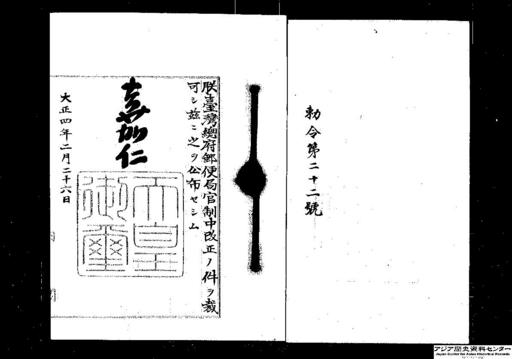 勅令第二十二號
朕臺灣總府郵便局官制中改正ノ件ヲ裁
可シ茲ニ之ヲ公布セシム
嘉仁
天皇
御璽
大正四年二月二十六日
アジア歴史資料センター
Japan Center for Asian Historical Records